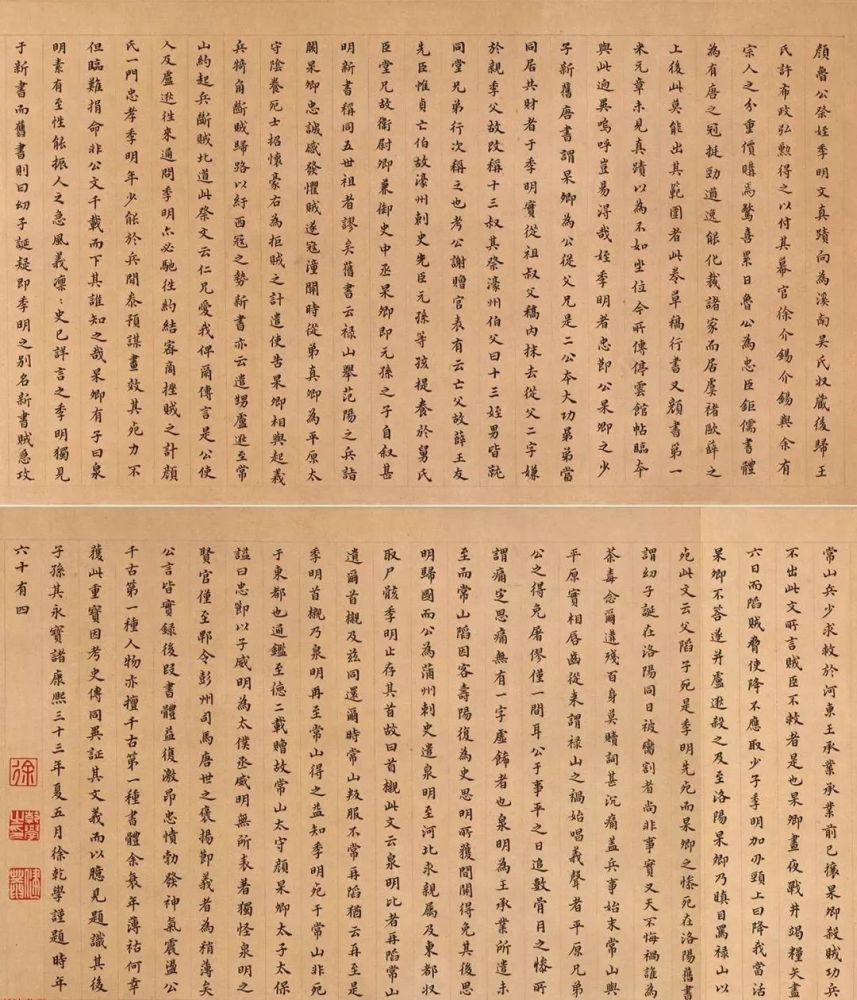 顔魯公祭姪季明文真蹟向為溪南吳氏収藏後歸王
氏許布政弘勲得之以付其幕官徐介錫介錫與余有
宗人之分重價購焉驚喜累日魯公為忠臣鉅儒書體
為有唐之冠挺勁遒逸能化裁諸家而居虞禇歐薛之
上後此莫能出其範圍者此卷草稿行書又顔書第一
米元章未見真蹟以為不如坐位今所傳停雲館帖臨本
與此迥異嗚呼豈易得哉姪季明者忠節公杲卿之少
子新舊唐書謂杲卿為公從父兄是二公本大功兄弟當
同居共財者于季明實從祖叔父稿內抹去從父二字嫌
於親季父故改稱十三叔其祭濠州伯父曰十三姪男皆
同堂兄弟行次稱之也考公謝贈官表有云亡父故薛王友
先臣惟貞亡伯故濠州刺史先臣元孫等孩提養於舅氏
臣堂兄故衛尉卿兼御史中丞杲卿即元孫之子自叙甚
明新書稱同五世祖者謬矣舊書云禄山舉范陽之兵詣
闕杲卿忠誠感發懼賊遂寇潼關時從弟真卿為平原太
守陰養死士招懷豪右為拒賊之計遣使告杲卿相與起義
兵犄角斷賊歸路以紓西寇之勢新書亦云遣甥盧逖至常
山約起兵斷賊北道此祭文云仁兄愛我俾爾傳言是公使
人及盧逖徃來通問季明亦必馳徃約結容商挫賊之計顔
氏一門忠孝季明年少能於兵間叅預謀畫效其死力不
但臨難捐命非公文千載而下其誰知之哉杲卿有子曰泉
明素有至性能振人之急風義凛〻史已詳言之季明獨見
于新書而舊書則曰幼子誕疑即季明之别名新書賊急攻
常山兵少求救於河東王承業承業前已攘杲卿殺賊功兵
不出此文所言賊臣不救者是也杲卿晝夜戰井竭糧矢盡
六日而陷賊脅使降不應取少子季明加刃頸上曰降我當活
杲卿不答遂并盧逖殺之及至洛陽杲卿乃瞋目罵禄山以
死此文云父陷子死是季明先死而杲卿之慘死在洛陽舊書
謂幼子誕在洛陽同日被臠割者尚非事實又天不悔禍誰為
荼毒念爾遘殘百身莫贖詞甚沉痛蓋兵事始末常山與
平原實相唇齒從来謂禄山之禍始唱義聲者平原兄弟
公之得免屠僇僅一間耳公于事平之日追數骨肉之慘所
謂痛定思痛無有一字虛飾者也泉明為王承業所遣未
至而常山陷因客壽陽復為史思明所獲間關得免其後思
明歸國而公為蒲州刺史遣泉明至河北求親属及東都収
取尸骸季明止存其首故曰首櫬此文云泉明比者再陷常山
遺爾首櫬及兹同還爾時常山叛服不常再陷猶云再至是
季明首櫬乃泉明再至常山得之益知季明死于常山非死
于東都也通鑑至德二載贈故常山太守顔杲卿太子太保
諡曰忠節以子威明為太僕丞威明無所表者獨怪泉明之
賢官僅至郫令彭州司馬唐世之褒揚節義者為稍薄矣
公言皆實録後段書體益復激昂忠憤勃發神氣震盪公
千古第一種人物亦擅千古第一種書體余衰年薄祜何幸
獲此重寶因考史傳同異証其文義而以臆見題識其後
子孫其永寶諸康熙三十三年夏五月徐乾學謹題時年
六十有四